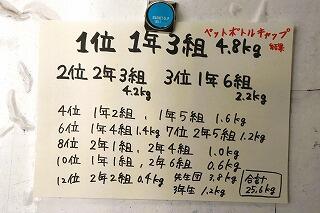 ペットボトルキャップ
結果
1位 1年3組 4.8kg
2位 2年3組 4.2kg 3位 1年6組 2.2kg
4位 1年2組、1年5組 1.6kg
6位 1年4組 1.4kg 7位 2年5組 1.2kg
8位 2年1組、2年4組 1.0kg
10位 1年1組、2年6組 0.6kg
12位 2年2組 0.4kg 先生団 3.8kg
3年生 1.2kg
合計
25.6kg